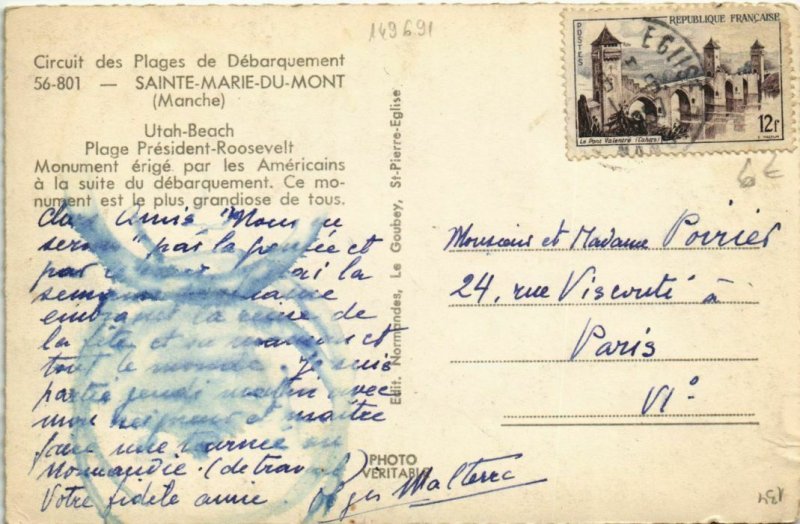 149691
Circuit des Plages de Débarquement
56-801 — SAINTE-MARIE-DU-MONT
(Manche)
Utah-Beach
Plage Président-Roosevelt
Monument érigé par les Américains
à la suite du débarquement. Ce mo-
nument est le plus grandiose de tous.
Amis
serons par la pensée et
par la
semaine
la reine de
la fête, et
tout le monde. Je suis
partie jeudi matin avec
mon seigneur et maître
faire une tournée en
Normandie. (de travail)
Votre fidèle amie.
Malterre
PHOTO
VÉRITABLE
Edit. Normandes, Le Goubey, St-Pierre-Eglise
POSTES
REPUBLIQUE FRANÇAISE
12F
Le Pont Valentré (Cahors)
6€
Monsieur et Madame Poirier
24, rue Visconti à
Paris
VI°
134